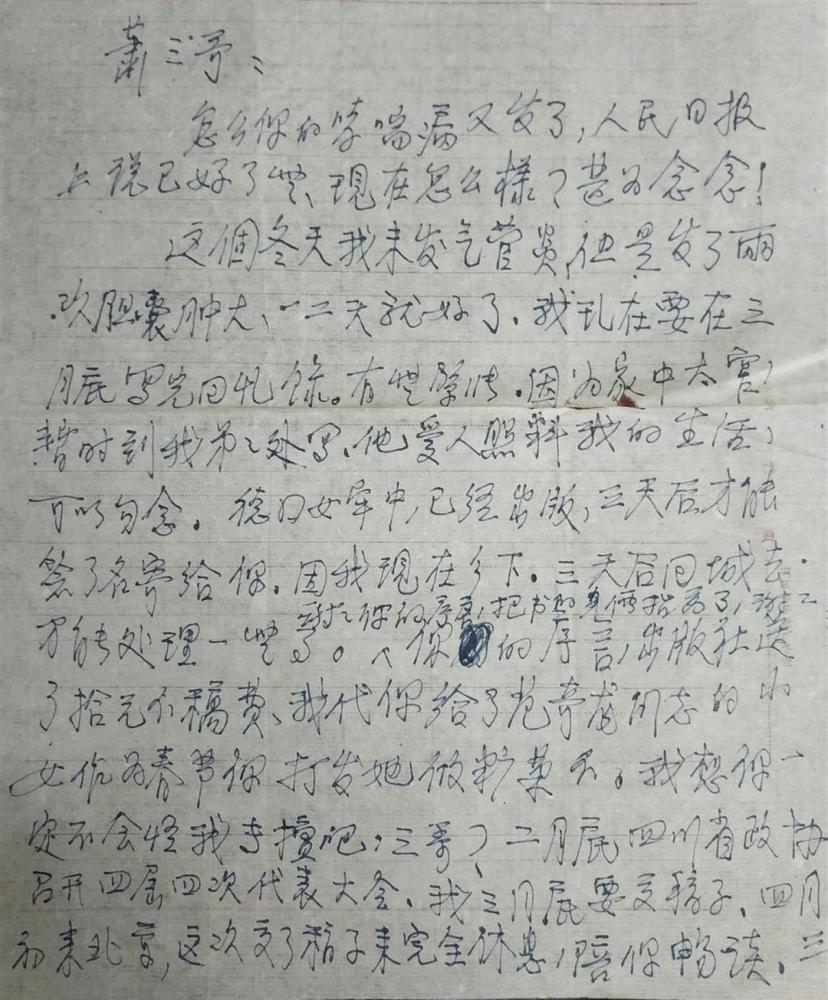 萧三哥：
怎么你的哮喘病又发了，人民日报
上说已好了些、现在怎么樣？甚为念念！
这個冬天我未发气管炎，但是发了两
次胆囊肿大、一二天就好了。我现在要在三
月底写完回忆录。有些紧张。因为家中太宫，
暂时到我弟弟处写、他爱人照料我的生活，
可以勿念。德的女牢中，已经出版，三天后才能
签了名寄给你。因我现在乡下。三天后回城去。
我把你的序言，把书的身价抬高了，谢谢
才能处理一些事。你的序言，出版社送
了拾元不稿费、我代你给了范奇龙同志的小
女作为春节你打发她做粑菜了。我想你一
定不会怪我专擅吧，三哥？二月底四川省政协
召开四届四次代表大会、我三月底要交稿子、四月
初来北京，这次交了稿子来完全休息，陪你畅谈。三